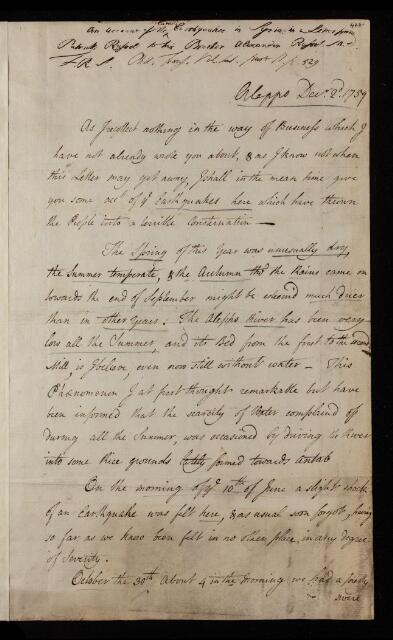 An Account of the late Earthquakes in Syria in a Letter from
Patrick Russel to his Brother Alexander Russel M.D.
F.R.S. Phil. Trans. Vol. part p. 529
Aleppo Decr. 2d. 1759
As I recollect nothing in the way of Business which I
have not already wrote you about, & as I know not when
this Letter may get away, I shall in the mean time give
you some acct. of ye Earthquakes here which have thrown
the People into a terrible Consternation —
The Spring of this Year was unusually dry,
the Summer temperate, & the Autumn tho' the Rains came on
towards the end of September might be reckond much drier
than in other Years. The Aleppo River has been very
low all the Summer, and its Bed from the first to the second
Mill is I beleive, even now still without water — This
Phænomenon I at first thought remarkable but have
been informed that the scarcity of Water complaind of
during all the Summer, was occasioned by driving the River
into some Rice grounds lately formed towards Antab
On the morning of ye 10th of June a slight shock
of an Earthquake was felt here, & as usual soon forgot, having
so far as we know been felt in no other place, in any degree
of Severity.
October the 30th about 4 in the Morning we had a pretty
severe